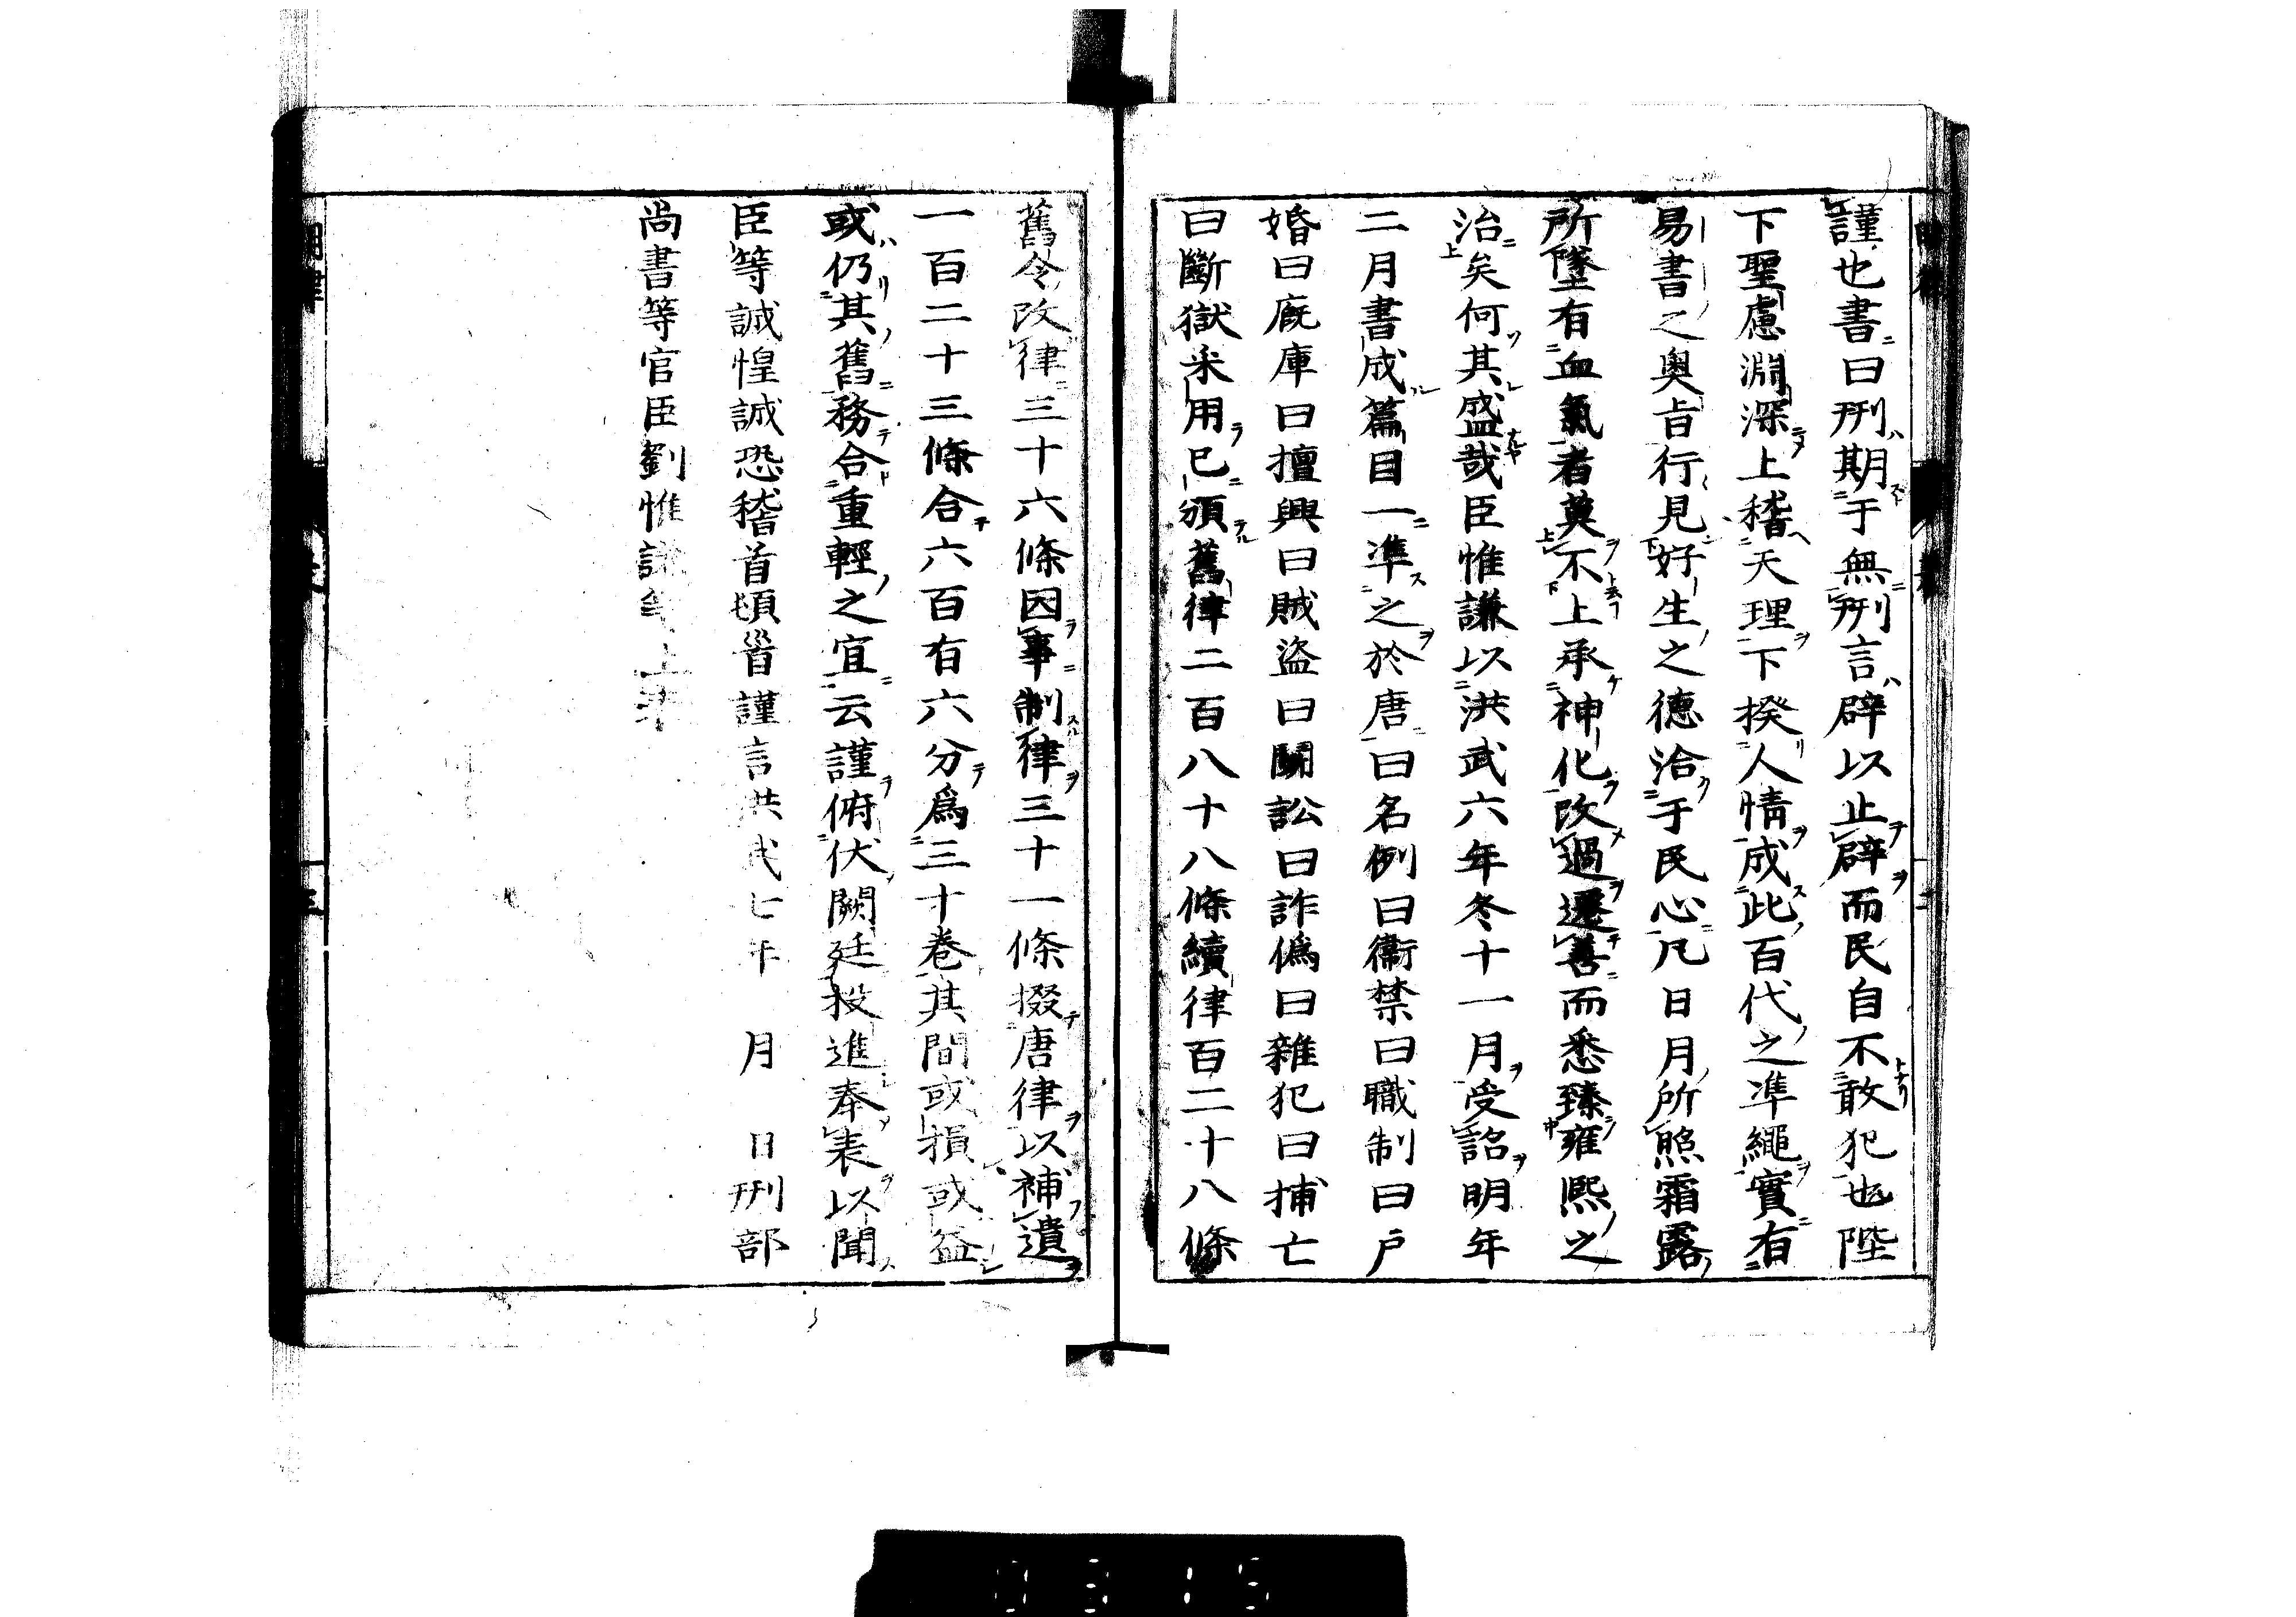 謹也書曰刑期于無刑言辟以止辟而民自不敢犯也陛
下聖慮淵深上稽天理下揆人情成此百代之凖繩實有
易書之奥旨行見好生之德洽于民心凡日月所照霜露
所墜有血氣者莫不上承神化改過遷善而悉臻雍熙之
治矣何其盛哉臣惟謙以洪武六年冬十一月受詔明年
二月書成篇目一凖之於唐曰名例曰衞禁曰職制曰戸
婚曰廐庫曰擅興曰賊盜曰鬭訟曰詐僞曰雜犯曰捕亡
曰斷獄采用已頒舊律二百八十八條續律百二十八條
舊令改律三十六條因事制律三十一條掇唐律以補遺
一百二十三條合六百有六分爲三十卷其間或損或益
或仍其舊務合重輕之宜云謹俯伏闕廷投進奉表以聞
臣等誠惶誠恐稽首頓首謹言洪武七年 月 日刑部
尚書等官臣劉惟謙等上表